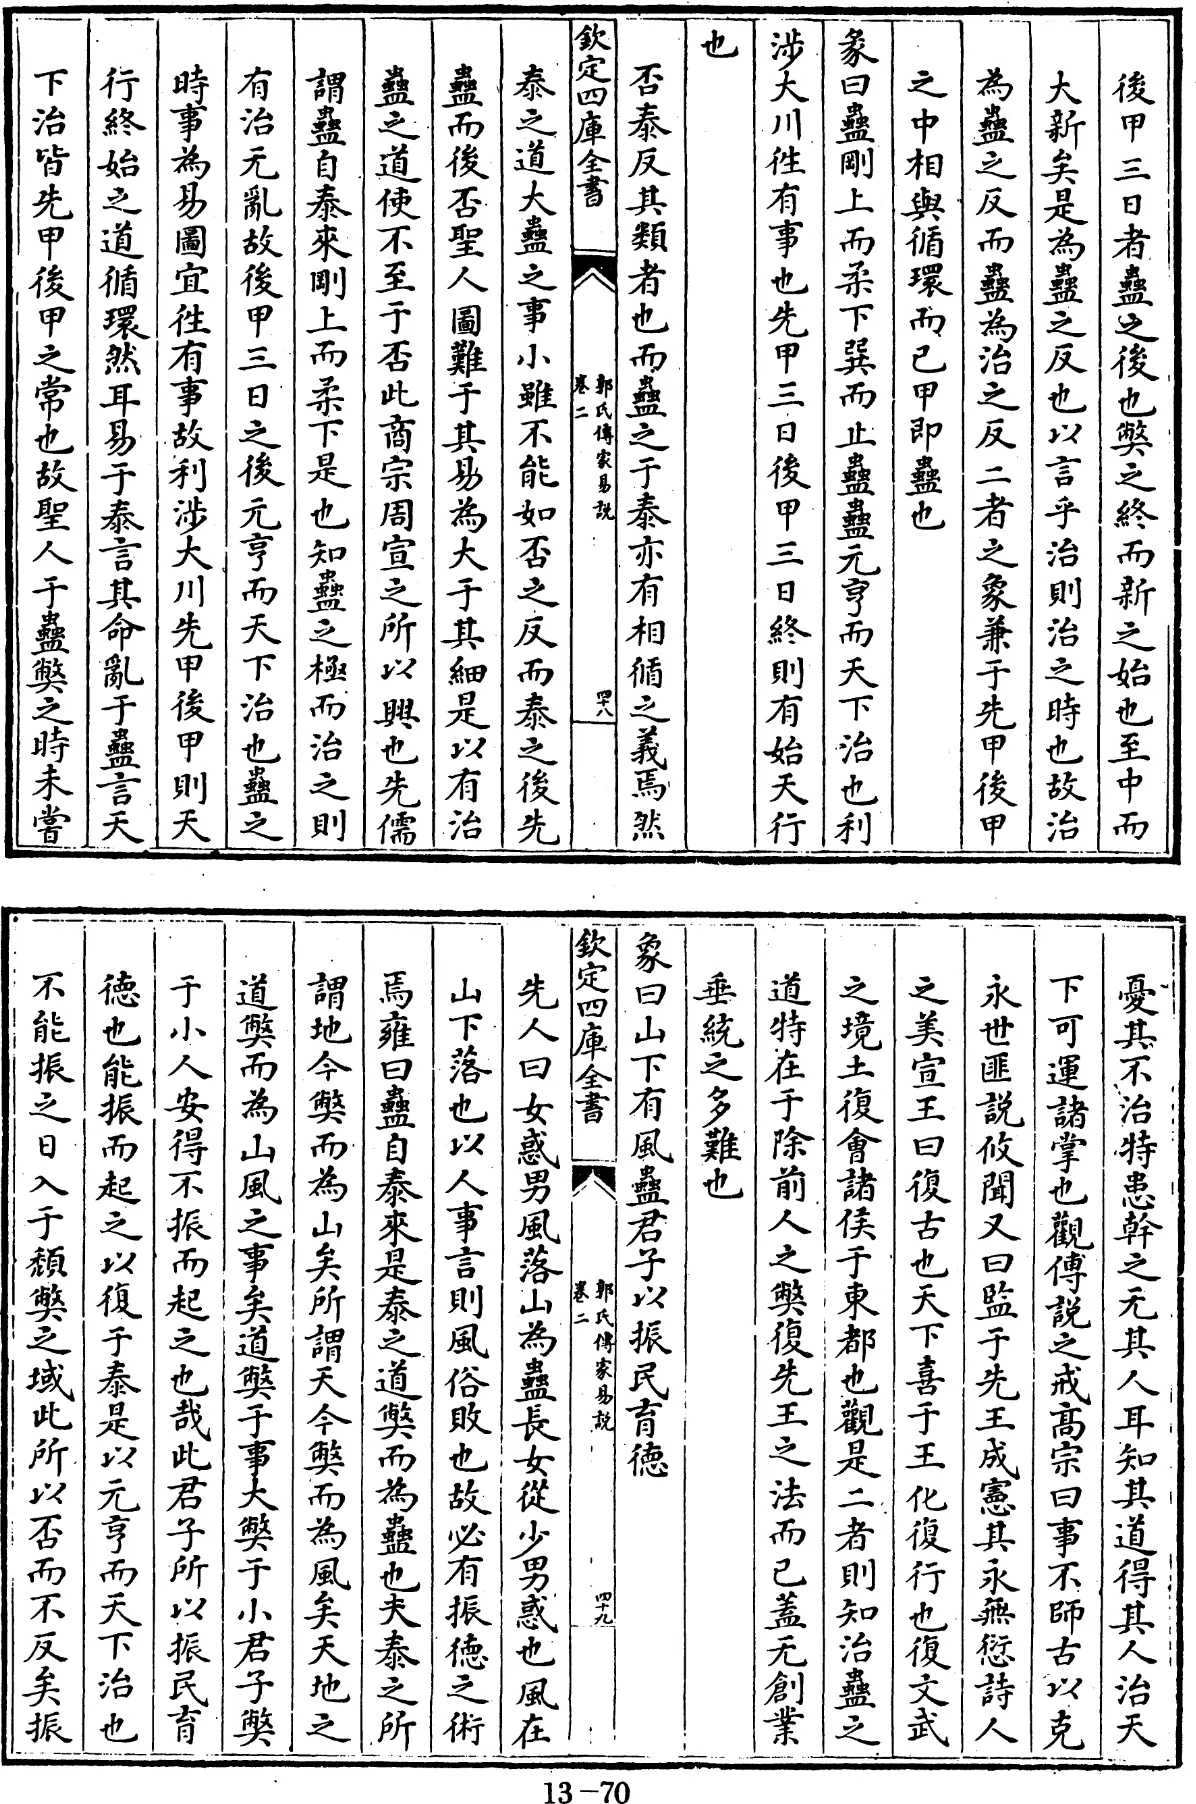 後甲三日者蠱之後也弊之終而新之始也至中而
大新矣是為蠱之反也以言乎治則治之時也故治
為蠱之反而蠱為治之反二者之象兼于先甲後甲
之中相與循環而已甲即蠱也
彖曰蠱剛上而柔下巽而止蠱蠱元亨而天下治也利
涉大川徃有事也先甲三日後甲三日終則有始天行
也
否泰反其類者也而蠱之于泰亦有相循之義焉然
欽定四庫全書
郭氏傳家易説
卷二
四十八
泰之道大蠱之事小雖不能如否之反而泰之後先
蠱而後否聖人圖難于其易為大于其細是以有治
蠱之道使不至于否此商宗周宣之所以興也先儒
謂蠱自泰來剛上而柔下是也知蠱之極而治之則
有治无亂故後甲三日之後元亨而天下治也蠱之
時事為易圖宜徃有事故利涉大川先甲後甲則天
行終始之道循環然耳易于泰言其命亂于蠱言天
下治皆先甲後甲之常也故聖人于蠱弊之時未嘗
憂其不治特患幹之无其人耳知其道得其人治天
下可運諸掌也觀傅説之戒髙宗曰事不師古以克
永世匪説攸聞又曰監于先王成憲其永無愆詩人
之美宣王曰復古也天下喜于王化復行也復文武
之境土復會諸侯于東都也觀是二者則知治蠱之
道特在于除前人之弊復先王之法而已蓋无創業
垂統之多難也
象曰山下有風蠱君子以振民育德
欽定四庫全書
郭氏傳家易説
卷二
四十九
先人曰女惑男風落山為蠱長女從少男惑也風在
山下落也以人事言則風俗敗也故必有振德之術
焉雍曰蠱自泰來是泰之道弊而為蠱也夫泰之所
謂地今弊而為山矣所謂天今弊而為風矣天地之
道弊而為山風之事矣道弊于事大弊于小君子弊
于小人安得不振而起之也哉此君子所以振民育
德也能振而起之以復于泰是以元亨而天下治也
不能振之日入于頽弊之域此所以否而不反矣振
13-70